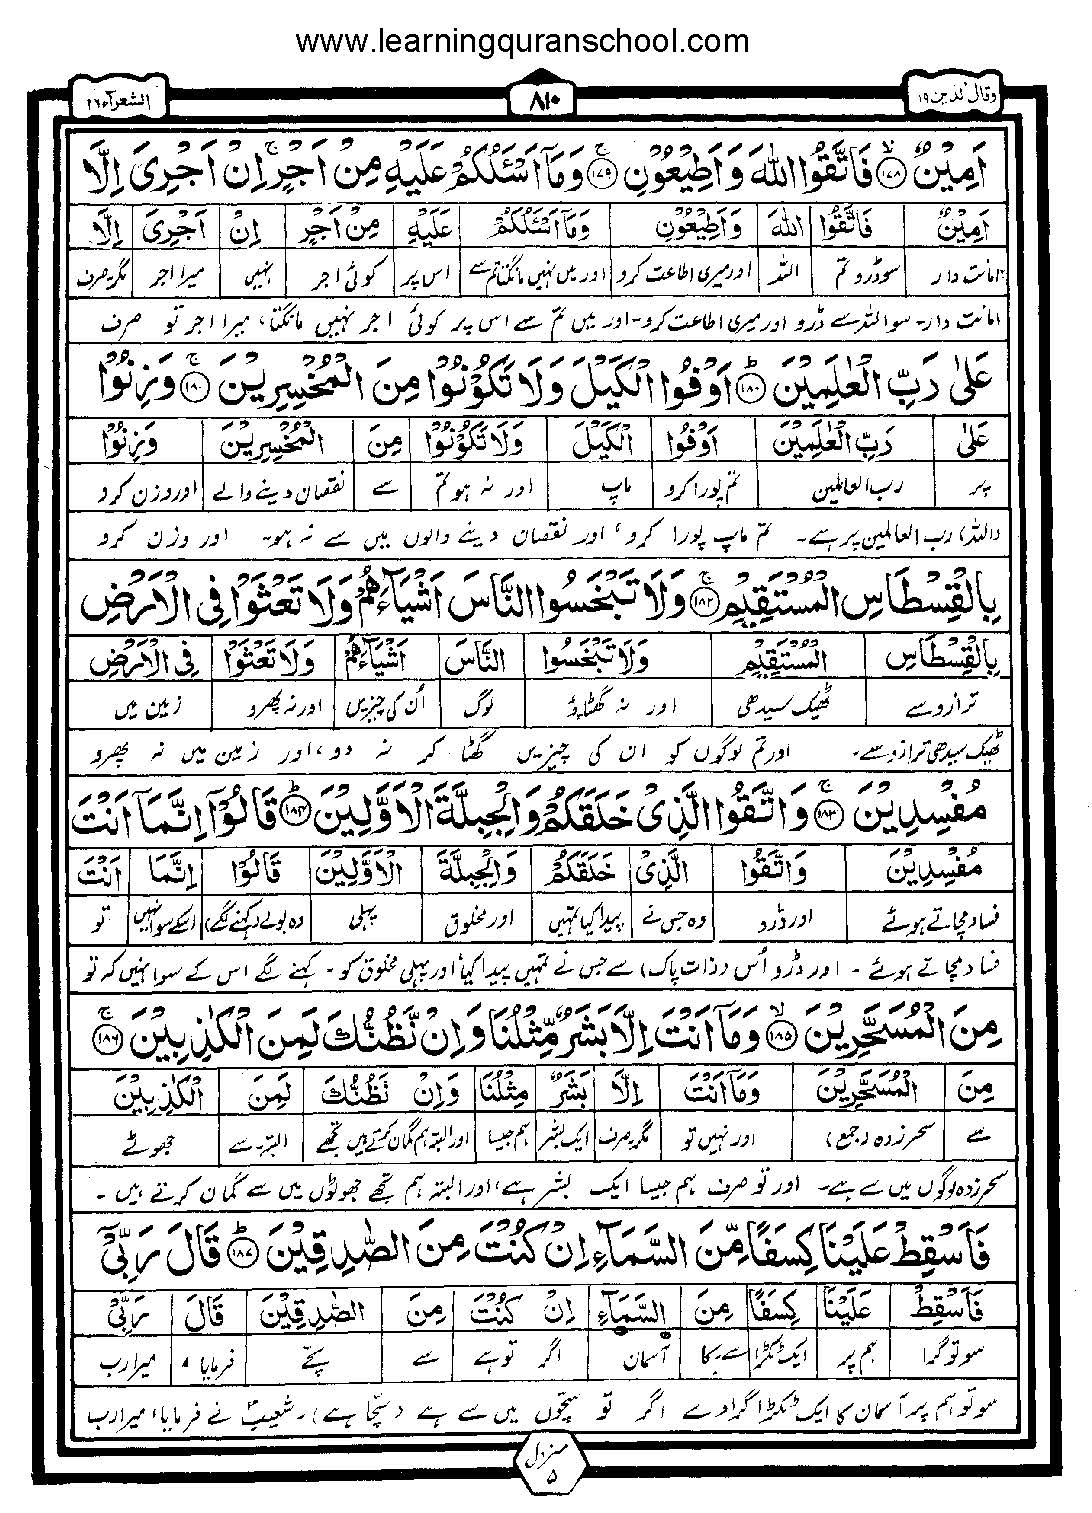 www.learningquranschool.com
وقال الذین ۱۹
۸۱۰
الشعرآء ۲۶
اَمِيْنٌ ۱۷۸ فَاتَّقُوا اللّٰهَ وَاَطِيْعُوْنِ ۱۷۹ وَمَاۤ اَسْئَلُكُمْ عَلَيْهِ مِنْ اَجْرٍ اِنْ اَجْرِىَ اِلَّا
اَمِيْنٌ فَاتَّقُوا اللّٰهَ وَاَطِيْعُوْنِ وَمَاۤ اَسْئَلُكُمْ عَلَيْهِ مِنْ اَجْرٍ اِنْ اَجْرِىَ اِلَّا
امانت دار سو ڈرو تم اللہ اور میری اطاعت کرو اور میں نہیں مانگتا تم سے اس پر کوئی اجر نہیں میرا اجر مگر صرف
امانت دار۔ سو اللہ سے ڈرو اور میری اطاعت کرو۔ اور میں تم سے اس پر کوئی اجر نہیں مانگتا، میرا اجر تو صرف
عَلٰى رَبِّ الْعٰلَمِيْنَ ۱۸۰ اَوْفُوا الْكَيْلَ وَلَا تَكُوْنُوْا مِنَ الْمُخْسِرِيْنَ ۱۸۱ وَزِنُوْا
عَلٰى رَبِّ الْعٰلَمِيْنَ اَوْفُوا الْكَيْلَ وَلَا تَكُوْنُوْا مِنَ الْمُخْسِرِيْنَ وَزِنُوْا
پر رب العالمین تم پورا کرو ماپ اور نہ ہو تم سے نقصان دینے والے اور وزن کرو
(اللہ) رب العالمین پر ہے۔ تم ماپ پورا کرو، اور نقصان دینے والوں میں سے نہ ہو۔ اور وزن کرو
بِالْقِسْطَاسِ الْمُسْتَقِيْمِ ۱۸۲ وَلَا تَبْخَسُوا النَّاسَ اَشْيَآءَهُمْ وَلَا تَعْثَوْا فِى الْاَرْضِ
بِالْقِسْطَاسِ الْمُسْتَقِيْمِ وَلَا تَبْخَسُوا النَّاسَ اَشْيَآءَهُمْ وَلَا تَعْثَوْا فِى الْاَرْضِ
ترازو سے ٹھیک سیدھی اور نہ گھٹاؤ لوگ اُن کی چیزیں اور نہ پھرو زمین میں
ٹھیک سیدھی ترازو سے۔ اور تم لوگوں کو ان کی چیزیں گھٹا کر نہ دو، اور زمین میں نہ پھرو
مُفْسِدِيْنَ ۱۸۳ وَاتَّقُوا الَّذِىْ خَلَقَكُمْ وَالْجِبِلَّةَ الْاَوَّلِيْنَ ۱۸۴ قَالُوْۤا اِنَّمَاۤ اَنْتَ
مُفْسِدِيْنَ وَاتَّقُوا الَّذِىْ خَلَقَكُمْ وَالْجِبِلَّةَ الْاَوَّلِيْنَ قَالُوْۤا اِنَّمَاۤ اَنْتَ
فساد مچاتے ہوئے اور ڈرو وہ جس نے پیدا کیا تمہیں اور مخلوق پہلی وہ بولے (کہنے لگے) اسکے سوا نہیں تو
فساد مچاتے ہوئے۔ اور ڈرو اُس (ذات پاک) سے جس نے تمہیں پیدا کیا اور پہلی مخلوق کو۔ کہنے لگے اس کے سوا نہیں کہ تو
مِنَ الْمُسَحَّرِيْنَ ۱۸۵ وَمَاۤ اَنْتَ اِلَّا بَشَرٌ مِّثْلُنَا وَاِنْ نَّظُنُّكَ لَمِنَ الْكٰذِبِيْنَ ۱۸۶
مِنَ الْمُسَحَّرِيْنَ وَمَاۤ اَنْتَ اِلَّا بَشَرٌ مِّثْلُنَا وَاِنْ نَّظُنُّكَ لَمِنَ الْكٰذِبِيْنَ
سے سحر زدہ (جمع) اور نہیں تو مگر صرف ایک بشر ہم جیسا اور البتہ ہم گمان کرتے ہیں تجھے البتہ سے جھوٹے
سحر زدہ لوگوں میں سے ہے۔ اور تو صرف ہم جیسا ایک بشر ہے، اور البتہ ہم تجھے جھوٹوں میں سے گمان کرتے ہیں۔
فَاَسْقِطْ عَلَيْنَا كِسَفًا مِّنَ السَّمَآءِ اِنْ كُنْتَ مِنَ الصّٰدِقِيْنَ ۱۸۷ قَالَ رَبِّىْۤ
فَاَسْقِطْ عَلَيْنَا كِسَفًا مِنَ السَّمَآءِ اِنْ كُنْتَ مِنَ الصّٰدِقِيْنَ قَالَ رَبِّىْۤ
سو تو گرا ہم پر ایک ٹکڑا سے۔ کا آسمان اگر تو ہے سے سچے فرمایا میرا رب
سو تو ہم پر آسمان کا ایک ٹکڑا گرا دے اگر تو سچوں میں سے ہے (سچا ہے)۔ شعیبؑ نے فرمایا، میرا رب
منزل
۵